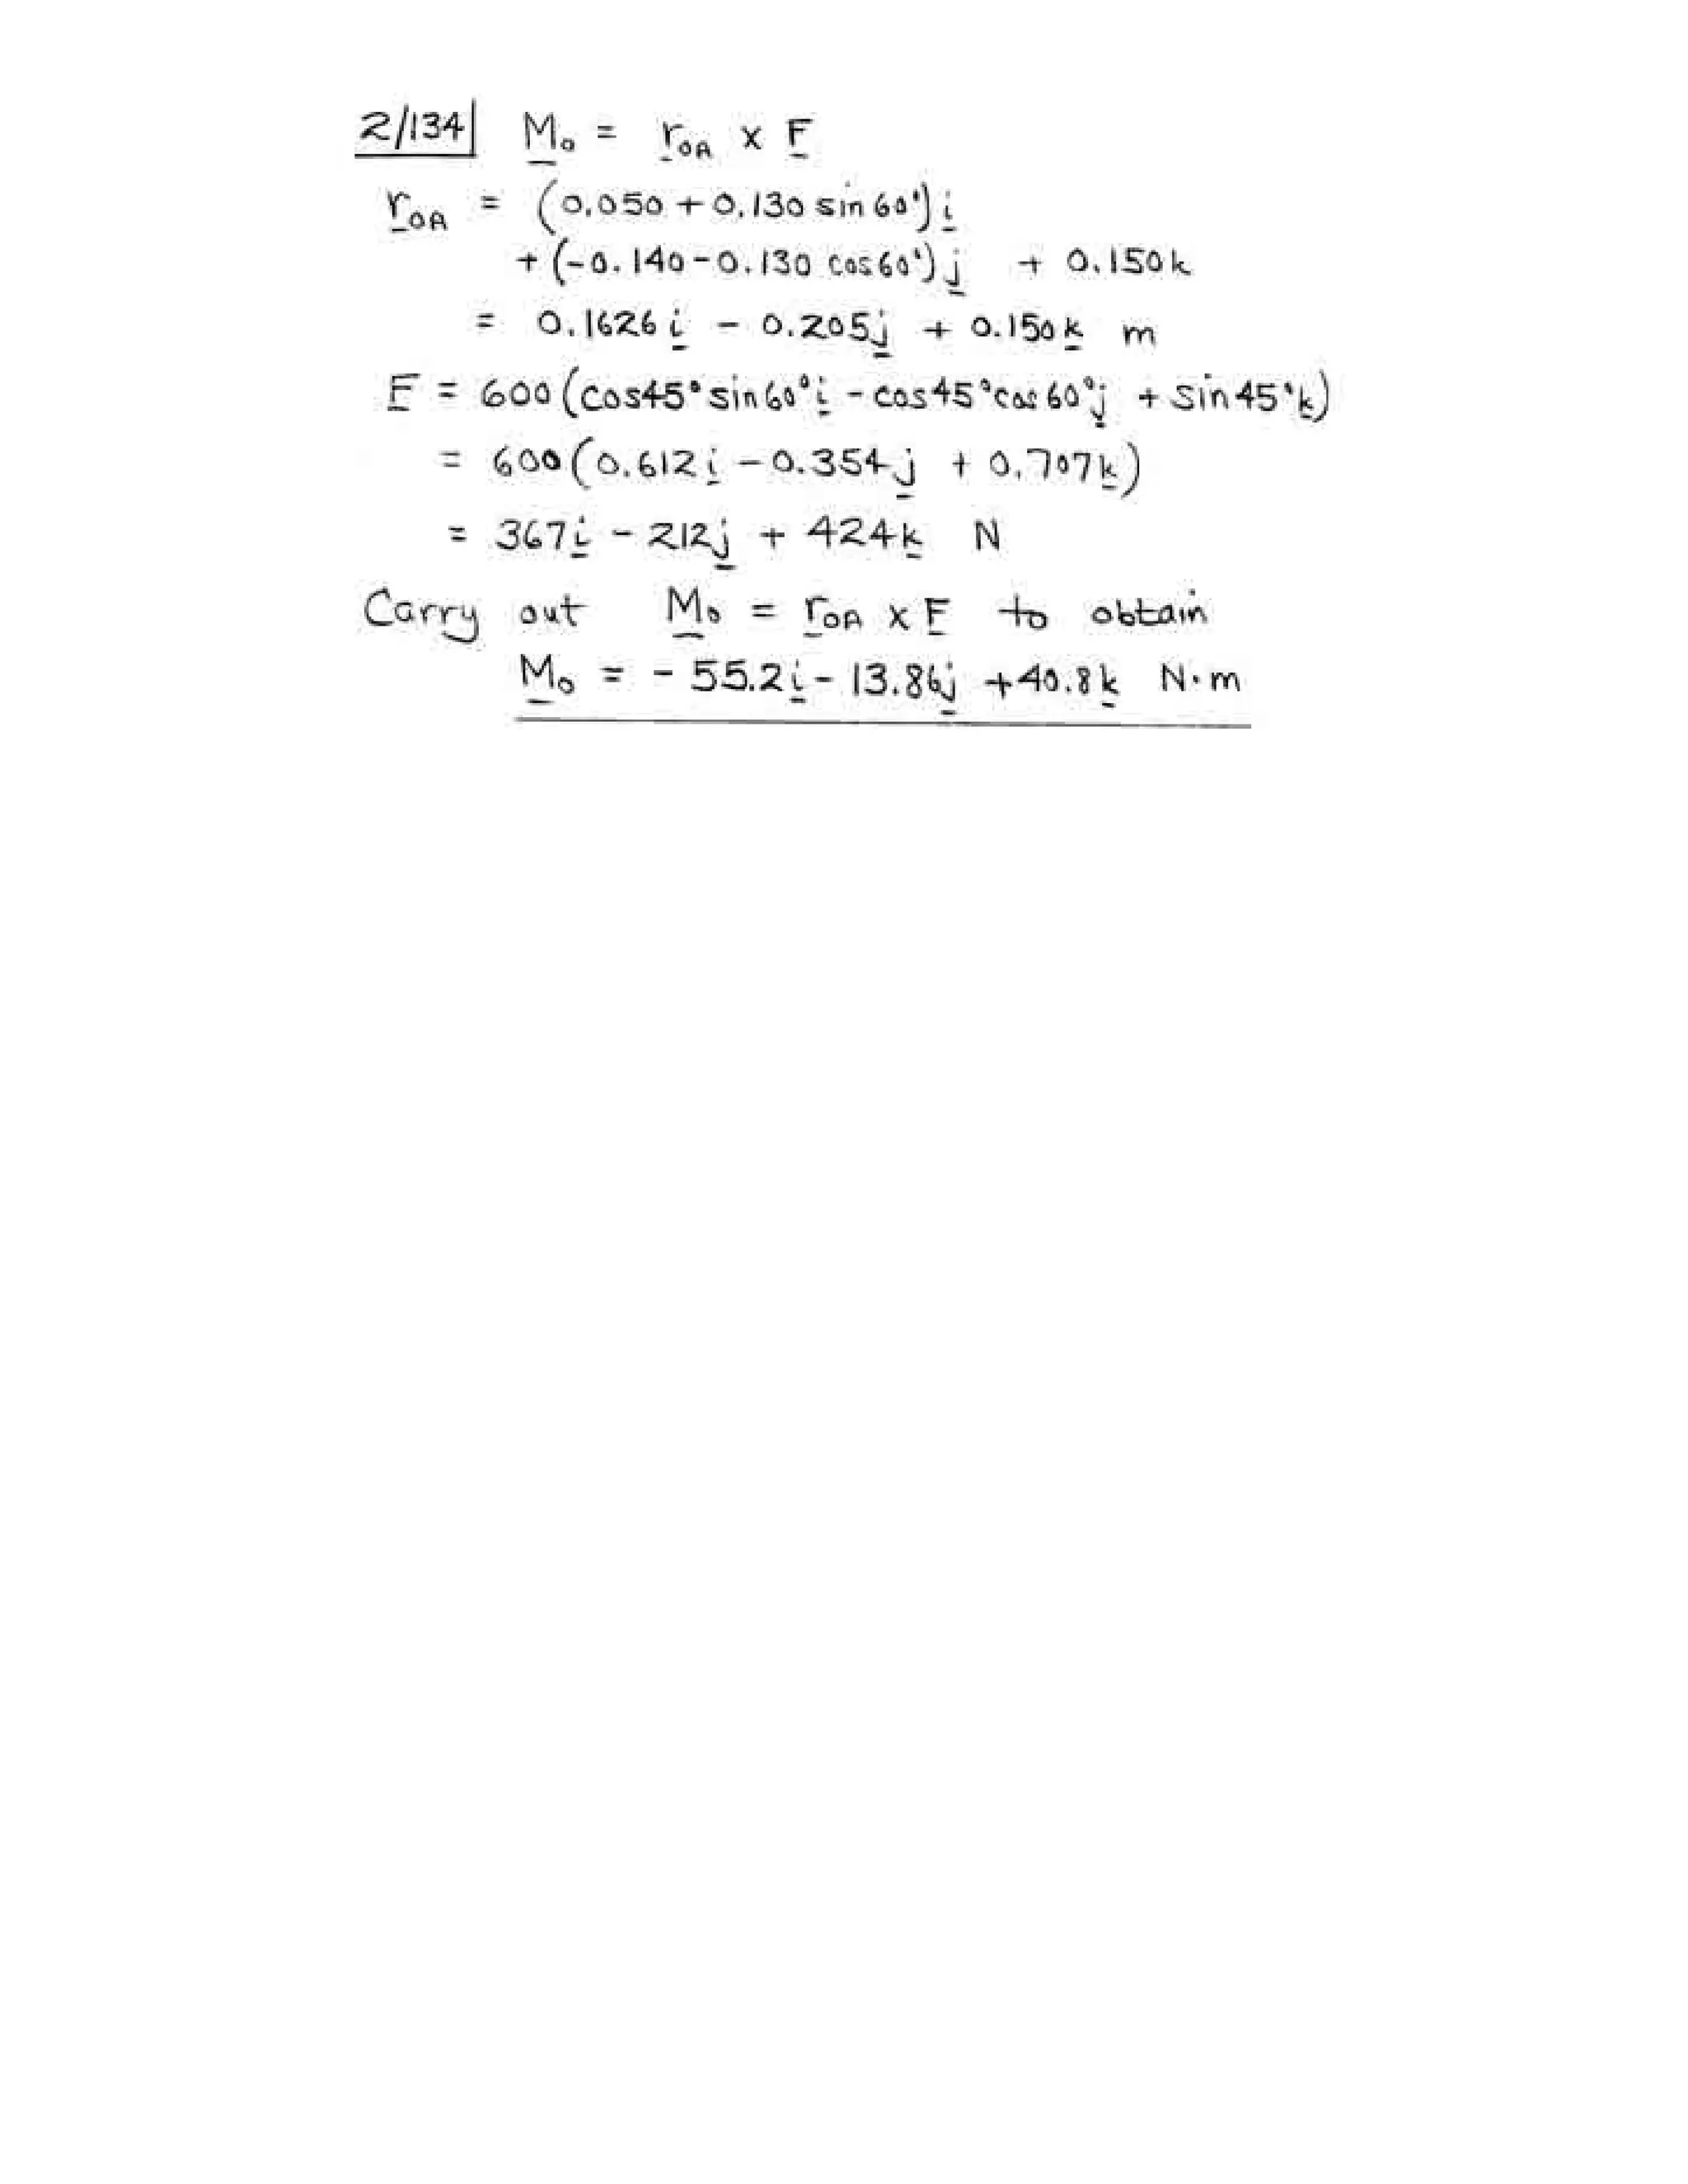 2/134 M₀ = r_OA × F
r_OA = (0.050 + 0.130 sin 60°) i
+ (-0.140 - 0.130 cos 60°) j + 0.150k
= 0.1626 i - 0.205 j + 0.150 k m
F = 600 (cos45° sin60° i - cos45° cos60° j + sin45° k)
= 600 (0.612 i - 0.354 j + 0.707 k)
= 367 i - 212 j + 424 k N
Carry out M₀ = r_OA × F to obtain
M₀ = - 55.2 i - 13.86 j + 40.8 k N·m